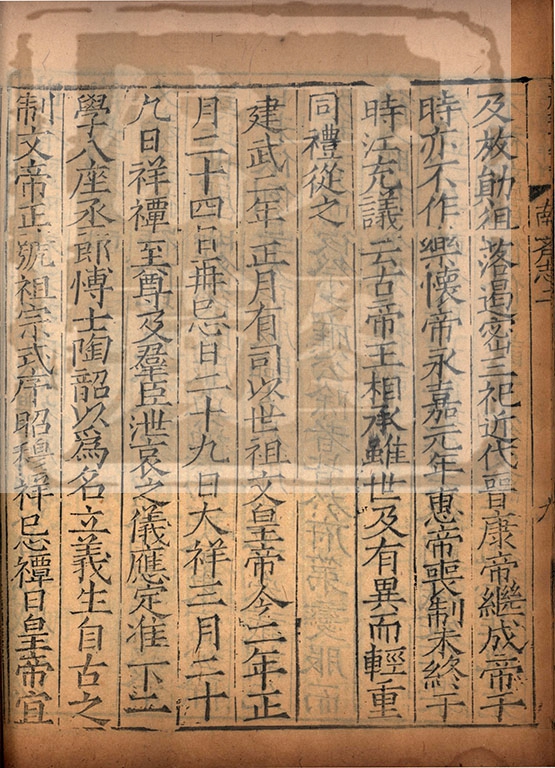 及放勛徂落遏密三祀近代晉康帝繼成帝于
時亦不作樂懷帝永嘉元年惠帝喪制未終于
時江充議云古帝王相承雖世及有異而輕重
同禮從之
建武二年正月有司以世祖文皇帝今二年正
月二十四日再忌日二十九日大祥三月二十
九日祥禫至尊及群臣泄哀之儀應定准下二
學八座丞郎博士陶韶以爲名立義生自古之
制文帝正號祖宗式序昭穆祥忌禫日皇帝宜